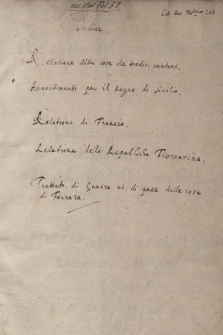 Indice
Relatione delle cose de tredici cantoni.
Avvertimenti per il Regno di Sicilia.
Relatione di Francia.
Relatione della Republica Fiorentina.
Trattato di Guerra et di pace delle cose
di Ferrara.